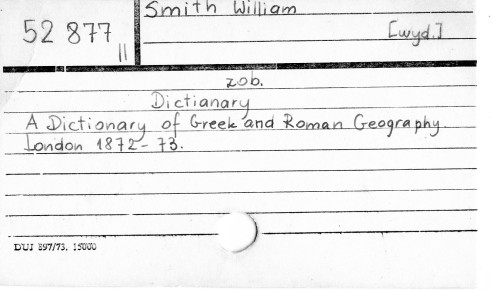 Smith William
52 877
II
[wyd.]
zob.
Dictianary
A Dictionary of Greek and Roman Geography.
London 1872-73.
DUJ 897/73. 15000